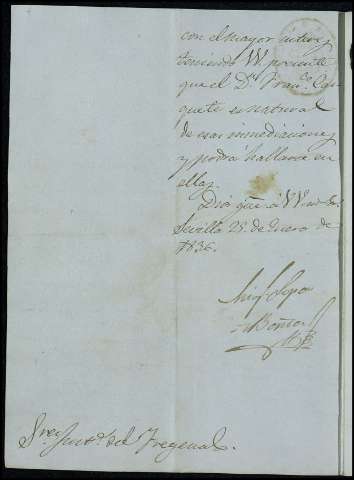 con el mayor interes,
teniendo VV. presente
que el Dn. Franco. Ca-
quete es natural
de esas inmediaciones
y podrá hallarse en
ellas.
Dios gue. á VV. ms. as.
Sevilla 25 de Enero de
1836.
Sres. Just.a del Fregenal.